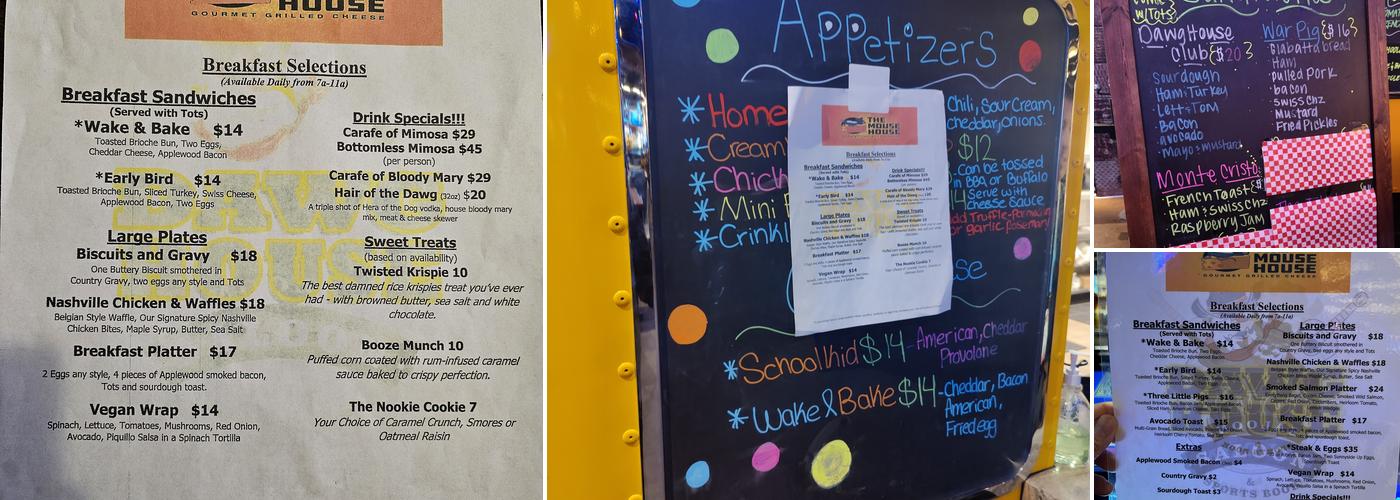 HOUSE
GOURMET GRILLED CHEESE
Breakfast Selections
(Available Daily from 7a-11a)
Breakfast Sandwiches
(Served with Tots)
*Wake & Bake $14
Toasted Brioche Bun, Two Eggs,
Cheddar Cheese, Applewood Bacon
*Early Bird $14
Toasted Brioche Bun, Sliced Turkey, Swiss Cheese,
Applewood Bacon, Two Eggs
Large Plates
Biscuits and Gravy $18
One Buttery Biscuit smothered in
Country Gravy, two eggs any style and Tots
Nashville Chicken & Waffles $18
Belgian Style Waffle, Our Signature Spicy Nashville
Chicken Bites, Maple Syrup, Butter, Sea Salt
Breakfast Platter $17
2 Eggs any style, 4 pieces of Applewood smoked bacon,
Tots and sourdough toast.
Vegan Wrap $14
Spinach, Lettuce, Tomatoes, Mushrooms, Red Onion,
Avocado, Piquillo Salsa in a Spinach Tortilla
Drink Specials!!!
Carafe of Mimosa $29
Bottomless Mimosa $45
(per person)
Carafe of Bloody Mary $29
Hair of the Dawg (32oz) $20
A triple shot of Hera of the Dog vodka, house bloody mary
mix, meat & cheese skewer
Sweet Treats
(based on availability)
Twisted Krispie 10
The best damned rice krispies treat you've ever
had - with browned butter, sea salt and white
chocolate.
Booze Munch 10
Puffed corn coated with rum-infused caramel
sauce baked to crispy perfection.
The Nookie Cookie 7
Your Choice of Caramel Crunch, Smores or
Oatmeal Raisin
Appetizers
*Home
Chili, Sour Cream,
cheddar, onions.
*Cream
$12
*Chick
can be tossed
in BBQ or Buffalo
*Mini
Serve with
cheese sauce
*Crinkl
THE
MOUSE
HOUSE
Breakfast Selections
Breakfast Sandwiches
*Wake & Bake $14
*Early Bird $14
Large Plates
Biscuits and Gravy $18
Nashville Chicken & Waffles $18
Breakfast Platter $17
Vegan Wrap $14
Drink Specials!!!
Sweet Treats
Twisted Krispie 10
Booze Munch 10
The Nookie Cookie 7
*Schoolkid $14-American, Cheddar
Provolone
*Wake & Bake $14-Cheddar, Bacon
American,
Fried egg
w/Tots
DawgHouse
Club {$20}
Sourdough
Ham & Turkey
Lett & Tom
Bacon
avocado
Mayo & mustard
War Pig {$16}
Ham
Pulled Pork
bacon
Swiss Chz
Mustard
Fried Pickles
Monte Cristo
French Toast
Ham & Swiss Chz
Raspberry Jam
MOUSE
HOUSE
GOURMET GRILLED CHEESE
Breakfast Selections
(Available Daily from 7a-11a)
Breakfast Sandwiches
(Served with Tots)
*Wake & Bake $14
Toasted Brioche Bun, Two Eggs,
Cheddar Cheese, Applewood Bacon
*Early Bird $14
*Three Little Pigs $16
Avocado Toast $15
Extras
Applewood Smoked Bacon $4
Country Gravy $2
Sourdough Toast $3
Large Plates
Biscuits and Gravy $18
One Buttery Biscuit smothered in
Country Gravy, two eggs any style and Tots
Nashville Chicken & Waffles $18
Smoked Salmon Platter $24
Breakfast Platter $17
*Steak & Eggs $35
Vegan Wrap $14
Drink Specials!!!